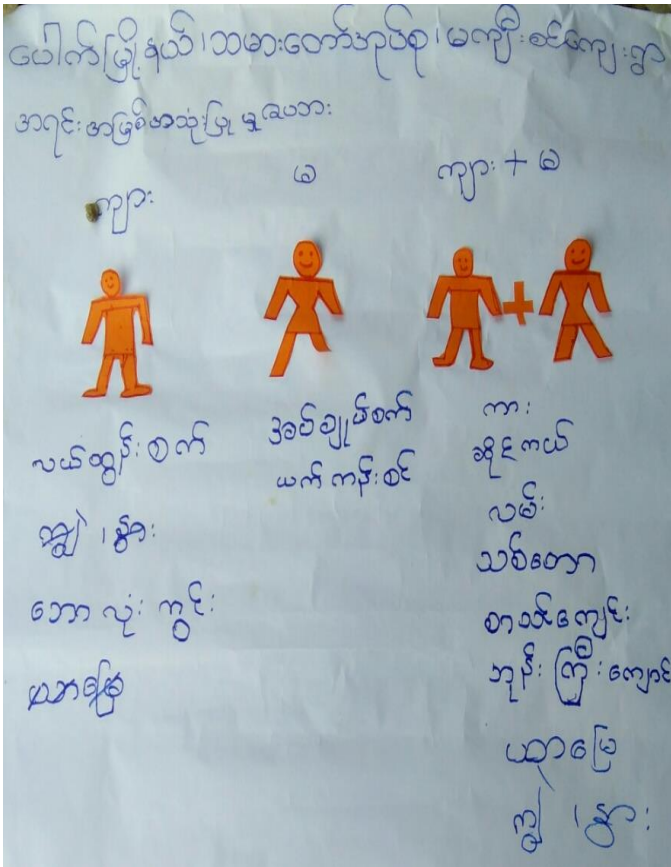 ပေါက်မြို့နယ်၊သမားတော်အုပ်စု၊မကျီးစင်ကျေးရွာ
အရင်းအမြစ်အသုံးပြုမှုဇယား
ကျား
မ
ကျား + မ
လယ်ထွန်းစက်
ကျွဲ ၊နွား
ဘောလုံးကွင်း
ယာမြေ
အပ်ချုပ်စက်
ယက်ကန်းစင်
ကား
ဆိုင်ကယ်
လမ်း
သစ်တော
စာသင်ကျောင်း
ဘုန်းကြီးကျောင်း
ယာမြေ
ကျွဲ ၊နွား